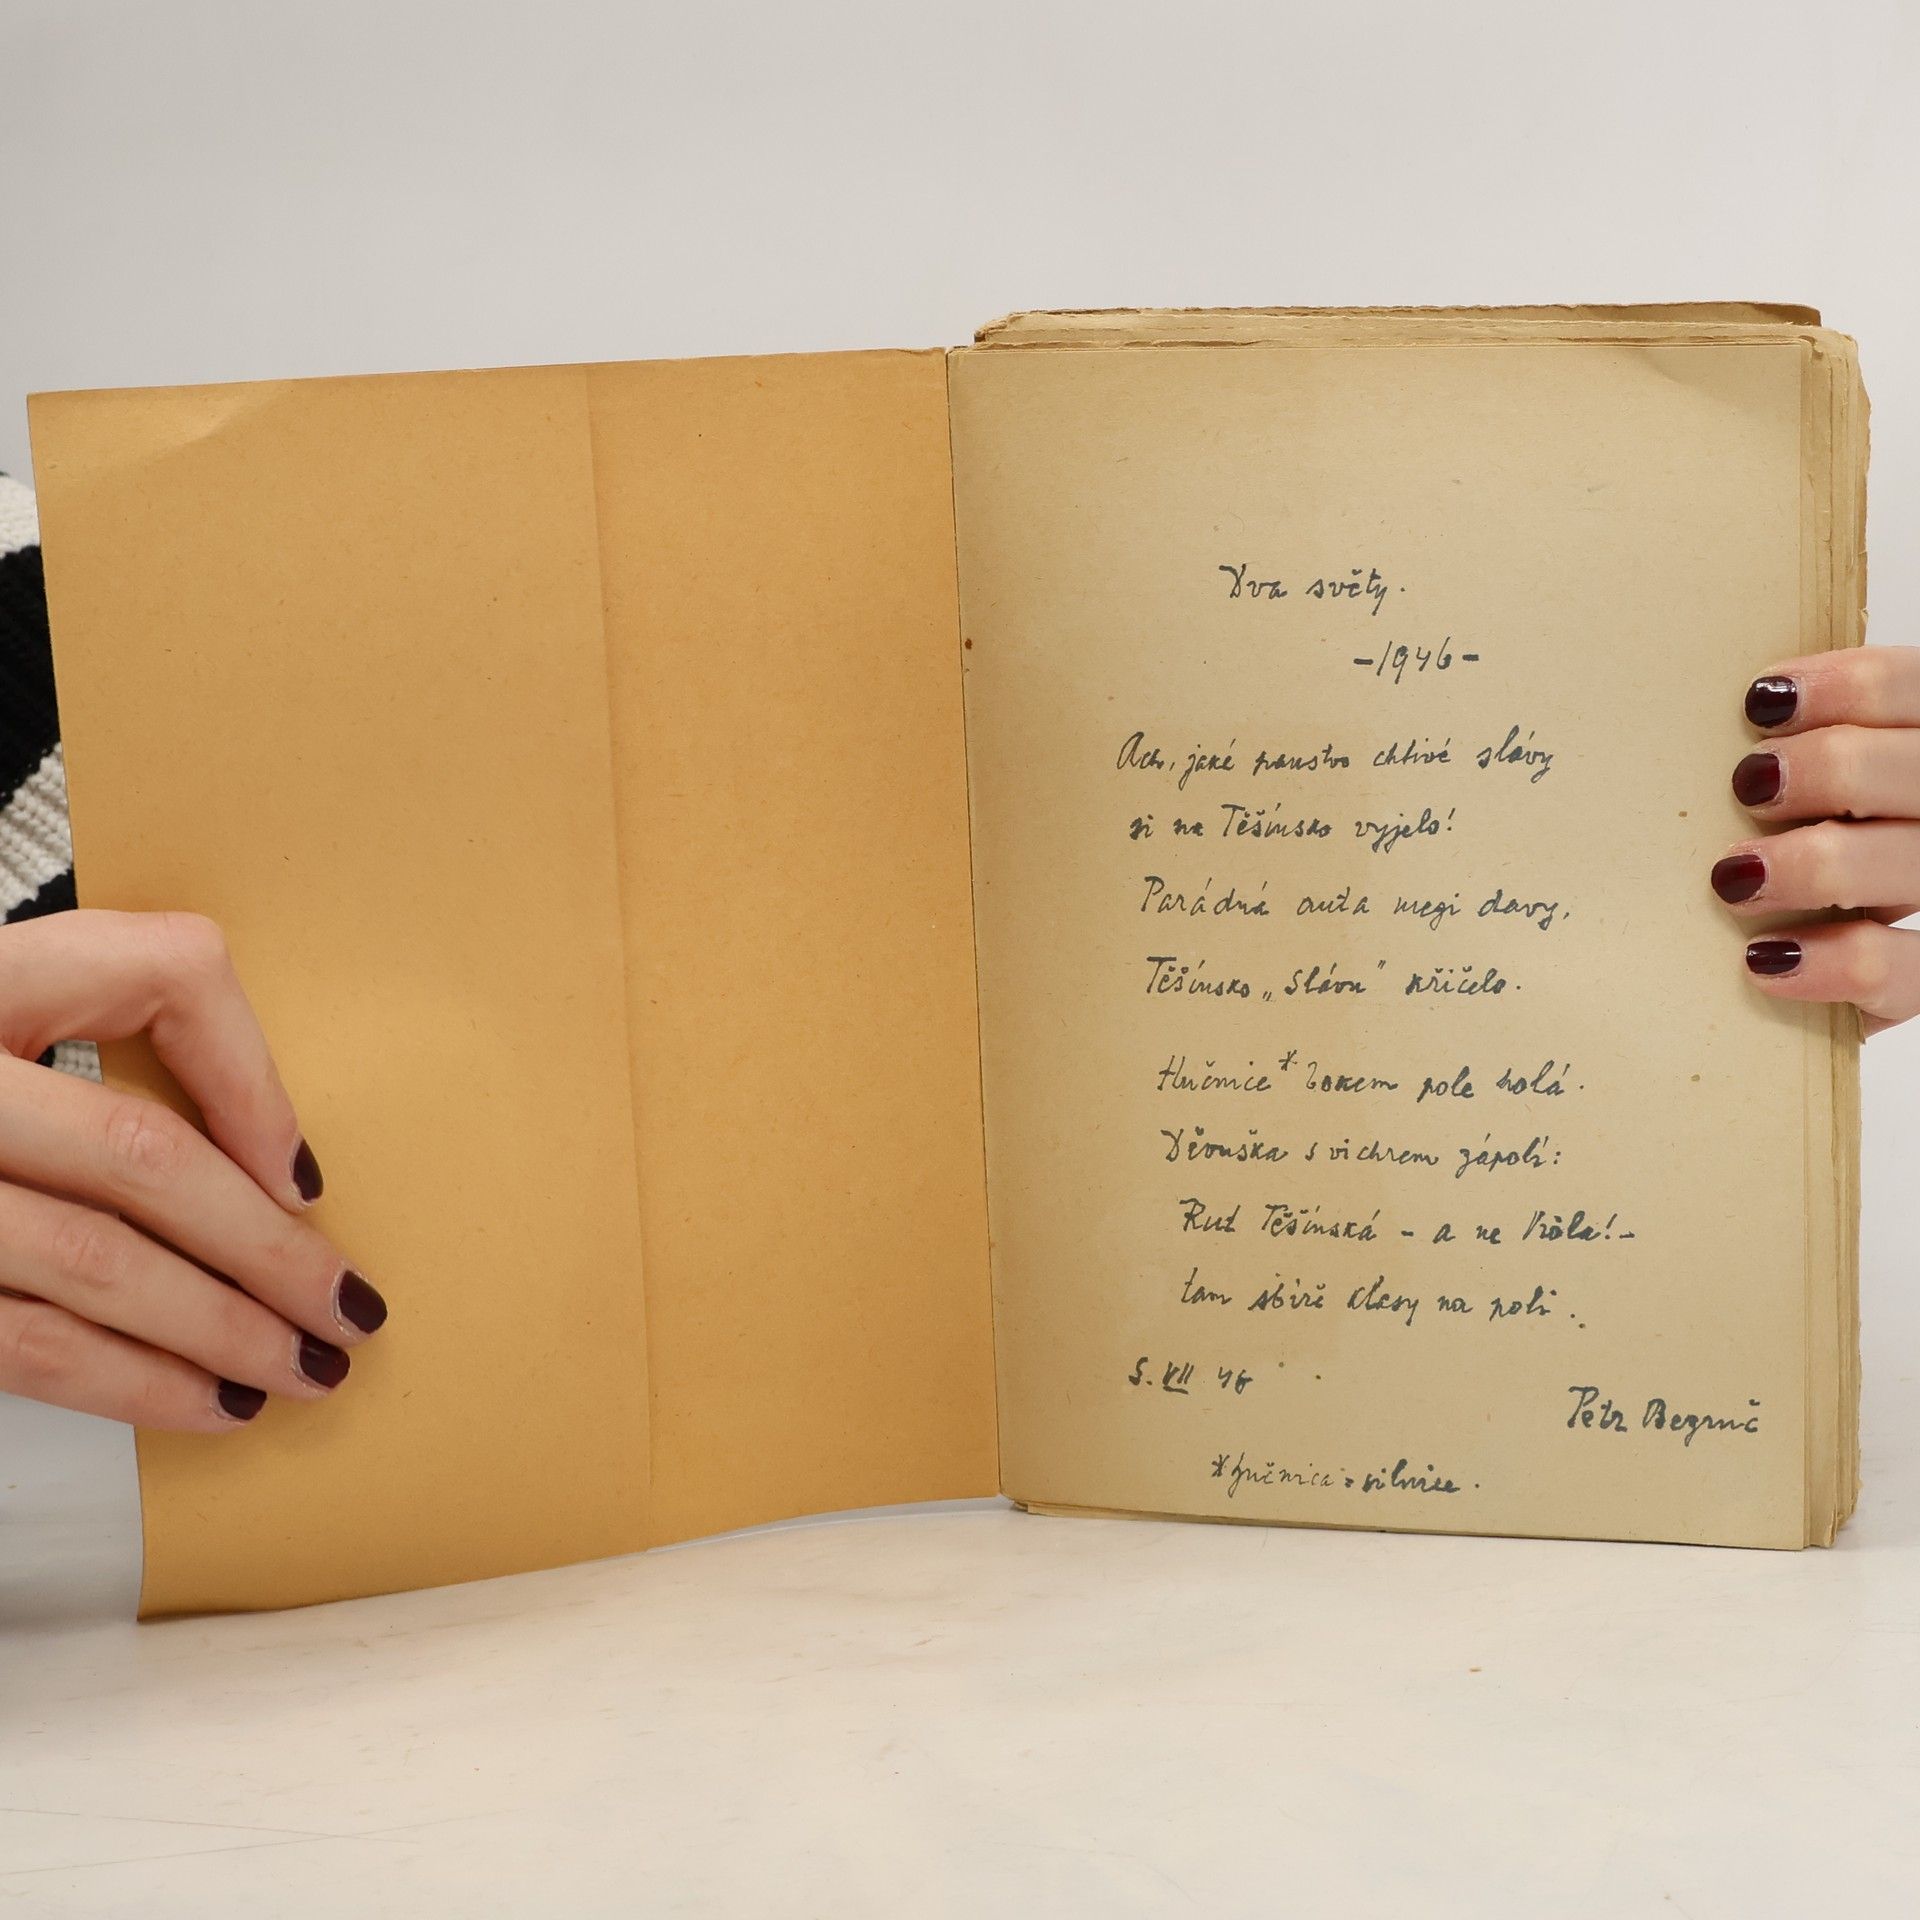 Dva světy.
-1946-
Ach, jaké panstvo chtivé slávy
si na Těšínsko vyjelo!
Parádná auta mezi davy,
Těšínsko „Slávu" křičelo.
Hučnice* bokem pole holá.
Děvuška s vichrem zápolí:
Rut Těšínská - a ne
tam sbírá klasy na poli.
5. VII 46
Petr Bezruč
*hučnica = silnice.